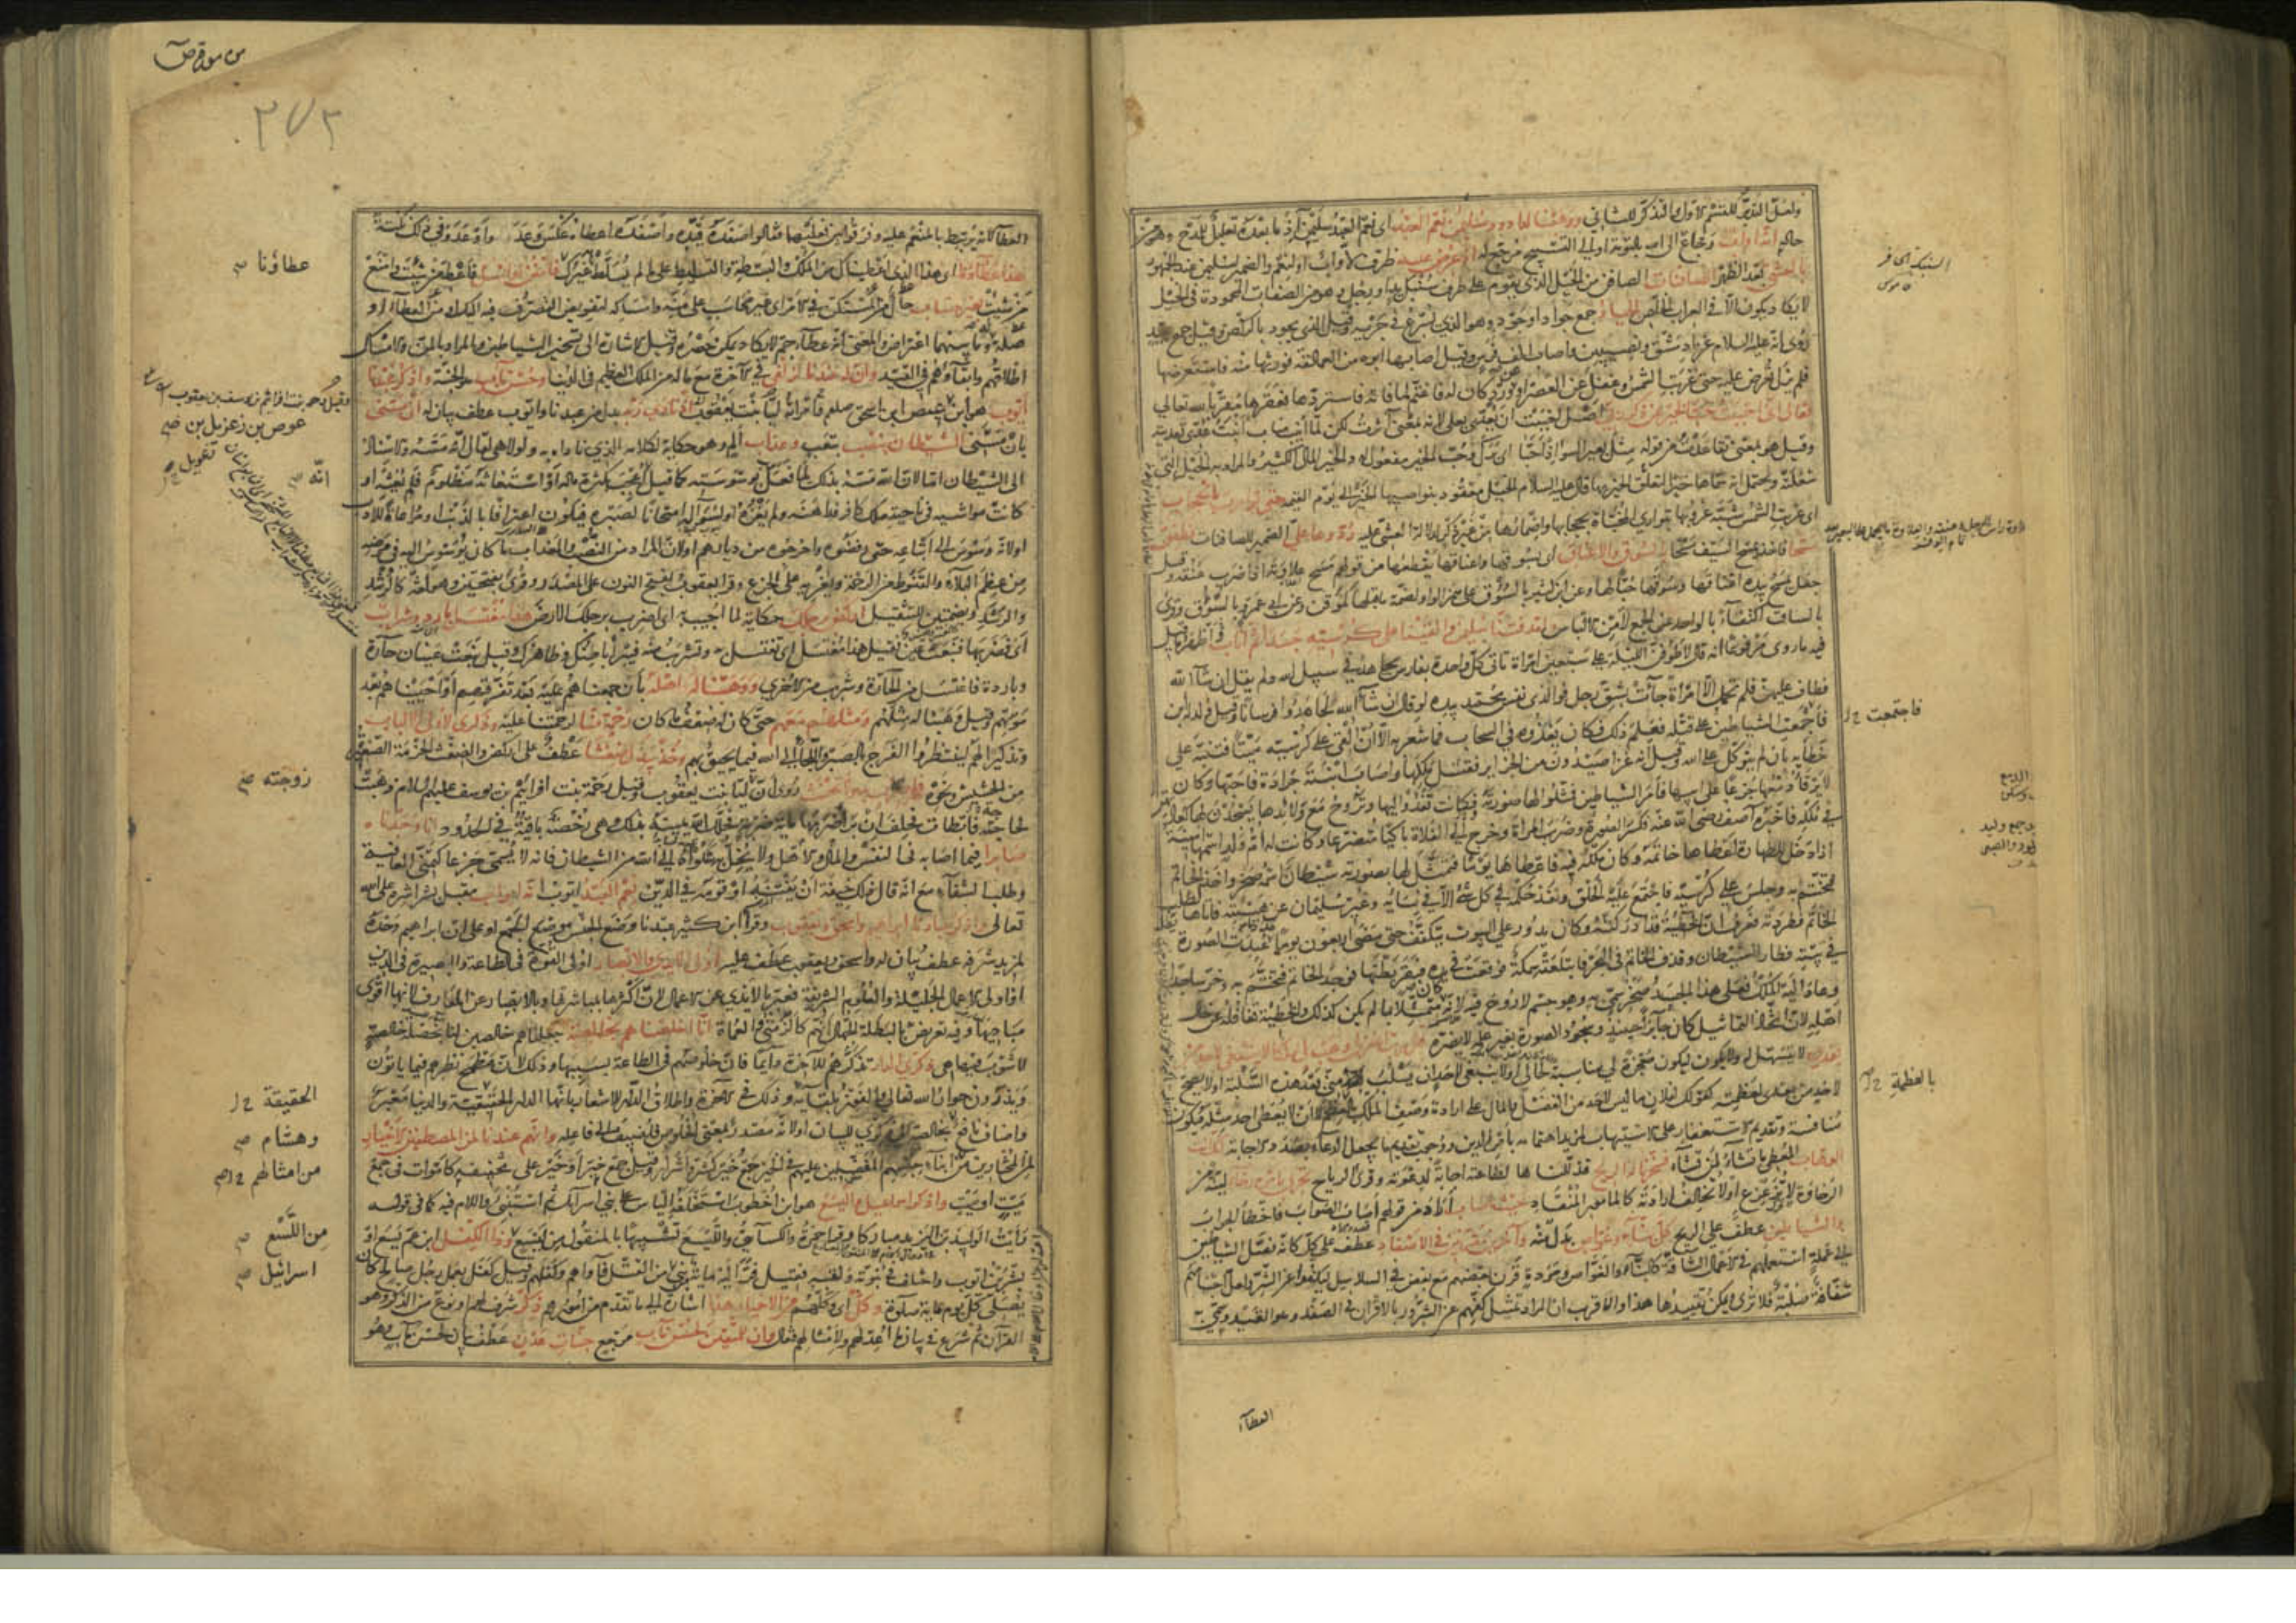 ولعل التدبر للقسم الاول والتذكر للثاني ووهبنا لداود سليمن نعم العبد اي نعم العبد سليمن اذ ما بعده تعليل للمدح وهو من
حاله انه اواب رجاع الى الله بالتوبة او الى التسبيح مرجع له اذ عرض عليه ظرف لاواب او لنعم والضمير لسليمن عند الجمهور
بالعشي بعد الظهر الصافنات الصافن من الخيل الذي يقوم على طرف سنبك يد او رجل وهو من الصفات المحمودة في الخيل
لا يكاد يكون الا في العراب الخلص الجياد جمع جواد او جود وهو الذي يسرع في جريه وقيل الذي يجود بالركض وقيل جمع جيد
روي انه عليه السلام غزا دمشق ونصيبين واصاب الف فرس وقيل اصابها ابوه من العمالقة فورثها منه فاستعرضها
فلم تزل تعرض عليه حتى غربت الشمس وغفل عن العصر او عن ورد كان له فاغتم لما فاته فاستردها فعقرها تقربا لله تعالى
فقال اني احببت حب الخير عن ذكر ربي اصل احببت ان يعدى بعلى لانه بمعنى آثرت لكن لما انيب مناب انبت عدي تعديته
وقيل هو بمعنى تقاعدت من قوله مثل بعير السوء اذ احبا اي برك وحب الخير مفعول له والخير المال الكثير والمراد به الخيل التي
شغلته ويحتمل انه سماها خيرا لتعلق الخير بها قال عليه السلام الخيل معقود بنواصيها الخير الى يوم القيمة حتى توارت بالحجاب
اي غربت الشمس شبه غروبها بتواري المخباة بحجابها واضمارها من غير ذكر لدلالة العشي عليه ردوها علي الضمير للصافنات فطفق
مسحا فاخذ يمسح السيف مسحا بالسوق والاعناق اي بسوقها واعناقها يقطعها من قولهم مسح علاوته اذا ضرب عنقه وقيل
جعل يمسح بيده اعناقها وسوقها حبا لها وعن ابن كثير بالسؤق على همز الواو لضمة ما قبلها كمؤقن وعن ابي عمرو بالسؤوق وقرئ
بالساق اكتفاء بالواحد عن الجمع لامن الالباس ولقد فتنا سليمن والقينا على كرسيه جسدا ثم اناب واظهر ما قيل
فيه ما روي مرفوعا انه قال لاطوفن الليلة على سبعين امراة تاتي كل واحدة بفارس يجاهد في سبيل الله ولم يقل ان شاء الله
فطاف عليهن فلم تحمل الا امراة جاءت بشق رجل فوالذي نفس محمد بيده لو قال ان شاء الله لجاهدوا فرسانا وقيل ولد له ابن
فاجمعت الشياطين على قتله فعلم ذلك فكان يغذوه في السحاب فما شعر به الا ان القي على كرسيه ميتا فتنبه على
خطائه بان لم يتوكل على الله وقيل انه غزا صيدون من الجزاير فقتل ملكها واصاب ابنته جرادة فاحبها وكان
لا يرقأ دمعها جزعا على ابيها فامر الشياطين فمثلوا لها صورته فكانت تغدو اليها وتروح مع ولايدها يسجدن لها كعادتهن
في ملكه فاخبره آصف رضي الله عنه فكسر الصورة وضرب المراة وخرج الى الفلاة باكيا متضرعا وكانت له ام ولد اسمها امينة
اذا دخل للطهارة اعطاها خاتمه وكان ملكه فيه فاعطاها يوما فتمثل لها بصورته شيطان اسمه صخر واخذ الخاتم
فتختم به وجلس على كرسيه فاجتمع عليه الخلق ونفذ حكمه في كل شي الا في نسائه وغير سليمان عن هيئته فاتاها لطلب
الخاتم فطردته فعرف ان الخطيئة قد ادركته وكان يدور على البيوت يتكفف حتى مضى اربعون يوما عدد ما عبدت الصورة
في بيته فطار الشيطان وقذف الخاتم في البحر فابتلعته سمكة فوقعت في يده فبقر بطنها فوجد الخاتم فتختم به وخر ساجدا
وعاد اليه الملك فعلى هذا الجسد صخر سمي به وهو جسم لا روح فيه لانه كان متمثلا بما لم يكن كذلك والخطيئة تغافله عن حال
اهله لان اتخاذ التماثيل كان جائزا حينئذ وسجود الصورة بغير علمه لا يضره قال رب اغفر لي وهب لي ملكا لا ينبغي لاحد من
بعدي لا يتسهل له ولا يكون ليكون معجزة لي مناسبة لحالي او لا ينبغي لاحد ان يسلبه مني بعد هذه السلبة او لا يصح
لاحد من بعدي لعظمته كقولك لفلان ما ليس لاحد من الفضل والمال على ارادة وصف الملك بالعظمة لا ان لا يعطى احد مثله فيكون
منافسة وتقديم الاستغفار على الاستيهاب لمزيد اهتمامه بامر الدين ووجوب تقديم ما يجعل الدعاء بصدد الاجابة انك انت
الوهاب المعطي ما تشاء لمن تشاء فسخرنا له الريح فذللناها لطاعته اجابة لدعوته وقرئ الرياح تجري بامره رخاء لينة من
الرخاوة لا تزعزع او لا تخالف ارادته كالمامور المنقاد حيث اصاب اراد من قولهم اصاب الصواب فاخطأ الجواب
والشياطين عطف على الريح كل بناء وغواص بدل منه وآخرين مقرنين في الاصفاد عطف على كل كانه فصل الشياطين
الى عملة استعملهم في الاعمال الشاقة كالبناء والغوص ومردة قرن بعضهم مع بعض في السلاسل ليكفوا عن الشر ولعل اجسامهم
شفافة صلبة فلا ترى ويمكن تقييدها هذا والاقرب ان المراد تمثيل كفهم عن الشرور بالاقران في الصفد وهو القيد وسمي به
فاجتمعت
بالعظمة
العطاء
٣٧٢
العطاء لانه يرتبط بالمنعم عليه وفرقوا بين فعليهما فقالوا صفده قيده واصفده اعطاه عكس وعد واوعد وفي ذلك نكتة
هذا عطاؤنا اي هذا الذي اعطيناك من الملك والبسطة والتسليط على ما لم يسلط عليه غيرك فامنن او امسك فاعط من شئت وامنع
من شئت بغير حساب حال من المستكن في الامر اي غير محاسب على منه وامساكه لتفويض التصرف فيه اليك او من العطاء او
صلة له وما بينهما اعتراض والمعنى انه عطاء جم لا يكاد يمكن حصره وقيل الاشارة الى تسخير الشياطين والمراد بالمن والامساك
اطلاقهم وابقاؤهم في القيد وان له عندنا لزلفى في الآخرة مع ما له من الملك العظيم في الدنيا وحسن مآب هو الجنة واذكر عبدنا
ايوب هو ابن عيص بن اسحق صلعم وامراته ليا بنت يعقوب اذ نادى ربه بدل من عبدنا وايوب عطف بيان له اني مسني
بان مسني الشيطان بنصب بتعب وعذاب الم وهو حكاية لكلامه الذي ناداه به ولولا هي لقال انه مسه والاسناد
الى الشيطان اما لان الله مسه بذلك لما فعل بوسوسته كما قيل انه اعجب بكثرة ماله او استغاثه مظلوم فلم يغثه او
كانت مواشيه في ناحية ملك كافر فداهنه ولم يغزه او لسؤاله امتحانا لصبره فيكون اعترافا بالذنب او مراعاة للادب
او لانه وسوس الى اتباعه حتى رفضوه واخرجوه من ديارهم او لان المراد من النصب والعذاب ما كان يوسوس اليه في مرضه
من عظم البلاء والقنوط من الرحمة ويغريه على الجزع وقرا يعقوب بفتح النون على المصدر وقرئ بفتحتين وهو لغة كالرشد
والرشد وبضمتين للتثقيل اركض برجلك حكاية لما اجيب به اي اضرب برجلك الارض هذا مغتسل بارد وشراب
اي فضربها فنبعت عين فقيل هذا مغتسل اي تغتسل به وتشرب منه فيبرأ باطنك وظاهرك وقيل نبعت عينان حارة
وباردة فاغتسل من الحارة وشرب من الاخرى ووهبنا له اهله بان جمعناهم عليه بعد تفرقهم او احييناهم بعد
موتهم وقيل وهبنا له مثلهم ومثلهم معهم حتى كان له ضعف ما كان رحمة منا لرحمتنا عليه وذكرى لاولي الالباب
وتذكيرا لهم لينتظروا الفرج بالصبر واللجاء الى الله فيما يحيق بهم وخذ بيدك ضغثا عطف على اركض والضغث الحزمة الصغيرة
من الحشيش ونحوه فاضرب به ولا تحنث روي ان ليا بنت يعقوب وقيل رحمة بنت افرائيم بن يوسف عليهم السلام ذهبت
لحاجة فابطات فحلف ان برئ ضربها ماية ضربة فحلل الله يمينه بذلك وهي رخصة باقية في الحدود انا وجدناه
صابرا فيما اصابه في النفس والمال والاهل ولا يخل به شكواه الى الله من الشيطان فانه لا يسمى جزعا كتمني العافية
وطلب الشفاء مع انه قال ذلك خيفة ان يفتنه او قومه في الدين نعم العبد ايوب انه اواب مقبل بشراشره على الله
تعالى واذكر عبادنا ابراهيم واسحق ويعقوب وقرا ابن كثير عبدنا وضع الجنس موضع الجمع او على ان ابراهيم وحده
لمزيد شرفه عطف بيان له واسحق ويعقوب عطف عليه اولي الايدي والابصار اولي القوة في الطاعة والبصيرة في الدين
او اولي الاعمال الجليلة والعلوم الشريفة فعبر بالايدي عن الاعمال لان اكثرها بمباشرتها وبالابصار عن المعارف لانها اقوى
مباديها وفيه تعريض بالبطلة الجهال انهم كالزمنى والعماة انا اخلصناهم بخالصة جعلناهم خالصين لنا بخصلة خالصة
لا شوب فيها هي ذكرى الدار تذكرهم للآخرة دايما فان خلوصهم في الطاعة بسببها وذلك لان مطمح نظرهم فيما ياتون
ويذرون جوار الله تعالى والفوز بلقايه وذلك في الآخرة واطلاق الدار للاشعار بانها الدار الحقيقية والدنيا معبر
واضاف نافع بخالصة الى ذكرى للبيان او لانه مصدر بمعنى الخلوص فاضيف الى فاعله وانهم عندنا لمن المصطفين الاخيار
لمن المختارين من ابناء جنسهم المفضلين عليهم في الخير جمع خير كشر واشرار وقيل جمع خير او خير على تخفيفه كاموات في جمع
ميت او ميت واذكر اسمعيل واليسع هو ابن اخطوب استخلفه الياس على بني اسرائيل ثم استنبئ واللام فيه كما في قوله
رايت الوليد بن اليزيد مباركا وقرا حمزة والكسائي والليسع تشبيها بالمنقول من ليسع وذا الكفل ابن عم يسع او
بشر بن ايوب واختلف في نبوته ولقبه فقيل فر اليه ماية نبي من القتل فآواهم وكفلهم وقيل كفل بعمل رجل صالح كان
يصلي كل يوم ماية صلوة وكل اي وكلهم من الاخيار هذا اشارة الى ما تقدم من امورهم ذكر شرف لهم او نوع من الذكر وهو
القرآن ثم شرع في بيان ما اعد لهم ولامثالهم فقال وان للمتقين لحسن مآب مرجع جنات عدن عطف بيان لحسن مآب وهو
عطاؤنا
عوص بن زعزيل بن
انه
زوجته
الحقيقة
وهشام
من امثالهم
من اللسع
اسرائيل